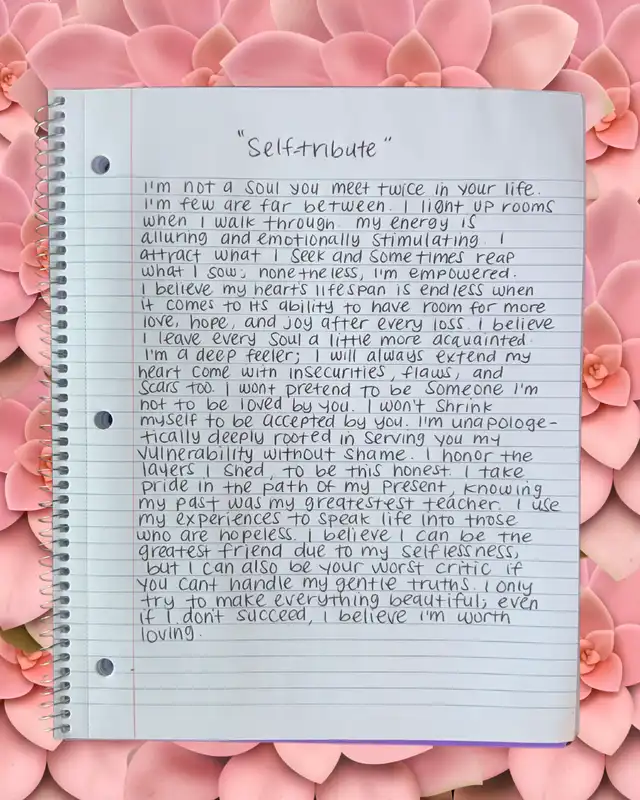 "Self-tribute"
I'm not a soul you meet twice in your life.
I'm few are far between. I light up rooms
when I walk through. my energy is
alluring and emotionally stimulating. I
attract what I seek and sometimes reap
what I sow; nonetheless, I'm empowered.
I believe my heart's lifespan is endless when
it comes to its ability to have room for more
love, hope, and joy after every loss. I believe
I leave every soul a little more acquainted.
I'm a deep feeler; I will always extend my
heart come with insecurities, flaws, and
scars too. I wont pretend to be someone I'm
not to be loved by you. I won't shrink
myself to be accepted by you. I'm unapologe-
tically deeply rooted in serving you my
vulnerability without shame. I honor the
layers I shed, to be this honest. I take
pride in the path of my present, knowing
my past was my greatestest teacher. I use
my experiences to speak life into those
who are hopeless. I believe I can be the
greatest friend due to my selflessness,
but I can also be your worst critic if
you cant handle my gentle truths. I only
try to make everything beautiful; even
if I dont succeed, I believe I'm worth
loving.